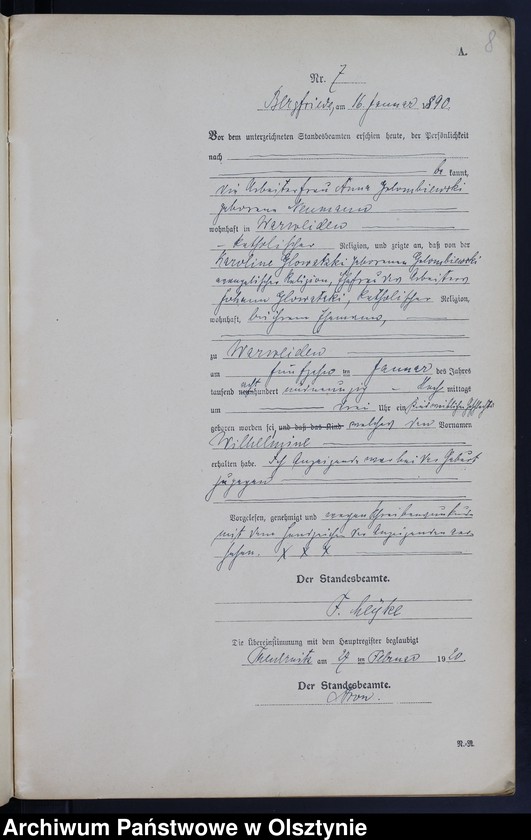 8
A.
Nr. 7
Bergfriede, am 16 Januar 1890.
Vor dem unterzeichneten Standesbeamten erschien heute, der Persönlichkeit
nach
be kannt,
die Arbeiterfrau Anna Golombiewski
geborene Neumann
wohnhaft in Warweiden
katholischer Religion, und zeigte an, daß von der
Karoline Glowatzki geborenen Golombiewski
evangelischer Religion, Ehefrau des Arbeiters
Johann Glowatzki, katholischer Religion,
wohnhaft bei ihrem Ehemann,
zu Warweiden
am fünfzehn ten Januar des Jahres
tausend acht hundert und neunzig Nach mittags
um drei Uhr ein Kind weiblichen Geschlechts
geboren worden sei und daß das Kind welches den Vornamen
Wilhelmine
erhalten habe. Die Anzeigende war bei der Geburt
zugegen
Vorgelesen, genehmigt und wegen Schreibensunkunde
mit dem Handzeichen der Anzeigenden ver-
sehen. X X X
Der Standesbeamte.
F.
Die Übereinstimmung mit dem Hauptregister beglaubigt
am 27 ten Februar 1920.
Der Standesbeamte.
N.-R.
Archiwum Państwowe w Olsztynie